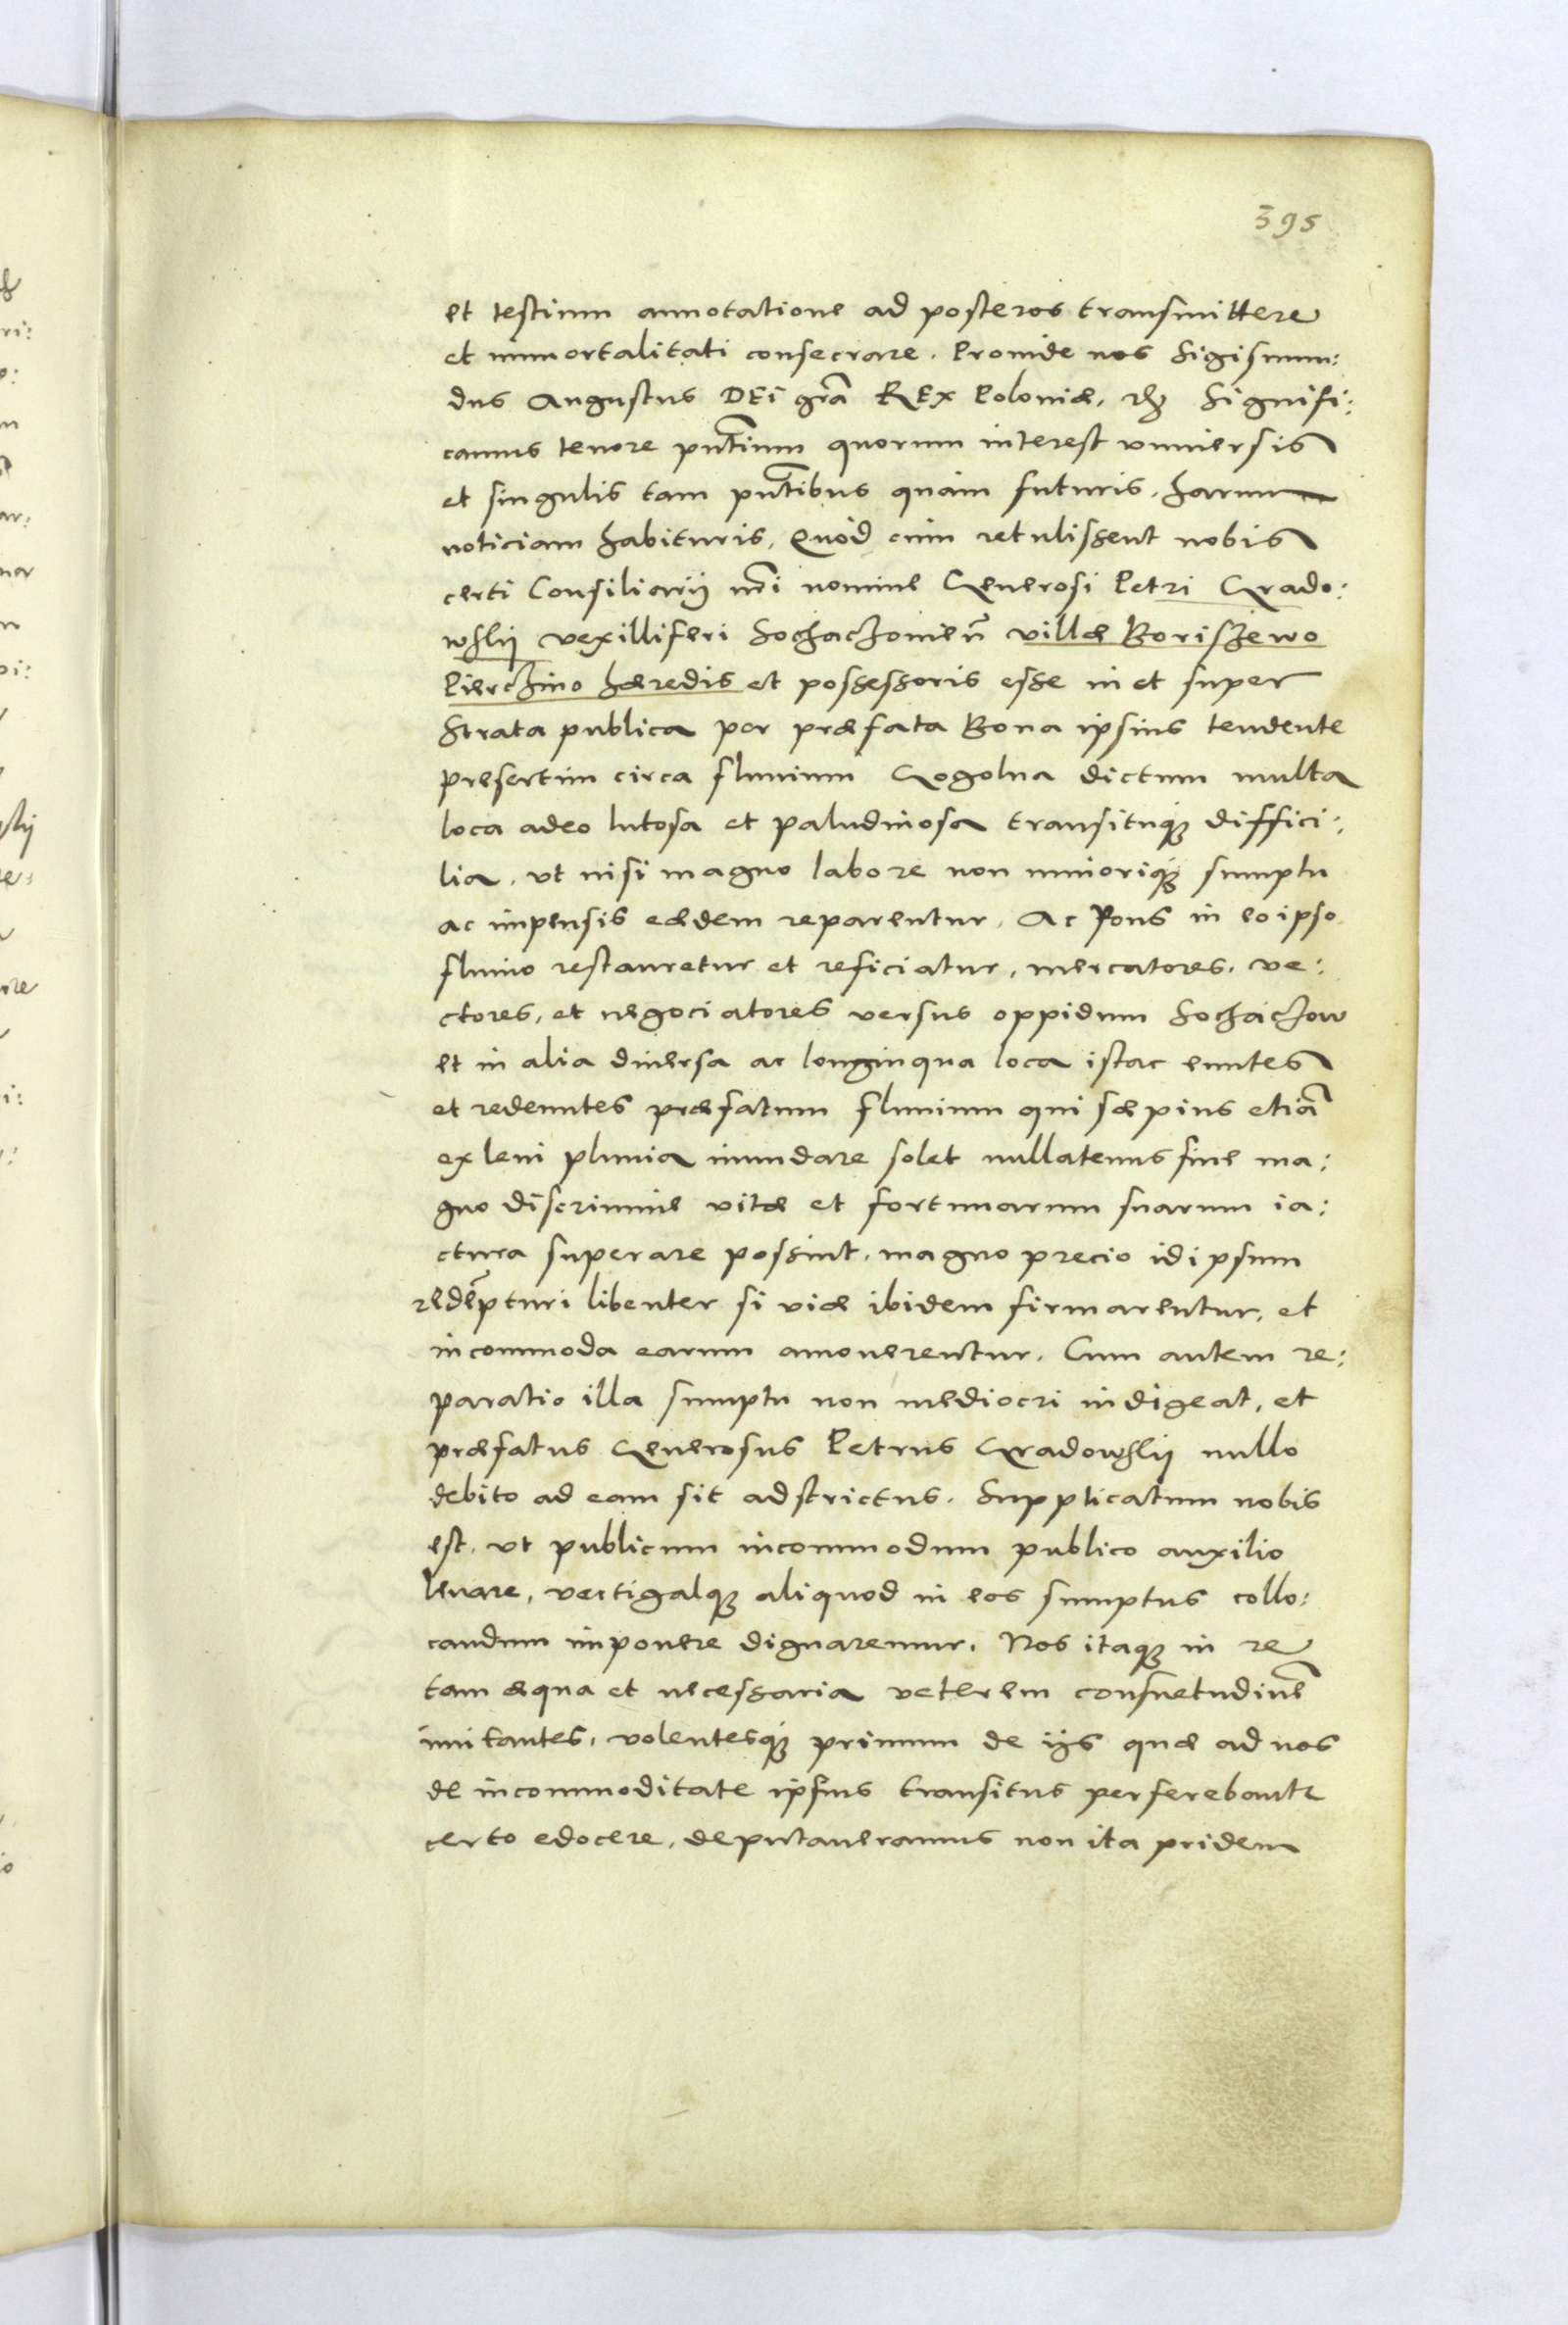 395
et testium annotatione ad posteros transmittere
et immortalitati consecrare. Proinde nos Sigismun:
dus Augustus DEI gr̃a REX Poloniæ, etc Signifi:
camus tenore pñtium quorum interest vniuersis
et singulis tam pñtibus quàm futuris, harum
noticiam habituris, Quòd cùm retulissent nobis
certi Consiliarij nr̃i nomine Generosi Petri Grado:
wskij vexilliferi Sochaczouieñ villæ Boriszewo
Pierczhino hæredis et possessoris esse in et super
Strata publica per præfata Bona ipsius tendente
presertim circa fluuium Gogolna dictum multa
loca adeo lutosa et paludinosa transituq́; diffici:
lia, vt nisi magno labore non minoriq́; sumptu
ac impensis eædem reparentur, Ac Pons in eo ipso
fluuio restauretur et reficiatur, mercatores, ve:
ctores, et negociatores versus oppidum Sochaczow
et in alia diuersa ac longinqua loca istac euntes
et redeuntes præfatum fluuium qui sæpius etiã
ex leui pluuia inundare solet nullatenus sine ma:
gno discrimine vitæ et fortunarum suarum ia:
ctura superare possint, magno precio idipsum
redẽpturi libenter si viæ ibidem firmarentur, et
incommoda earum amouerentur. Cum autem re:
paratio illa sumptu non mediocri indigeat, et
præfatus Generosus Petrus Gradowskij nullo
debito ad eam sit adstrictus. Supplicatum nobis
est, vt publicum incommodum publico auxilio
leuare, vectigalq; aliquod in eos sumptus collo:
candum imponere dignaremur. Nos itaq; in re
tam æqua et necessaria veterem consuetudinẽ
imitantes, volentesq́; primum de ijs quæ ad nos
de incommoditate ipsius transitus perferebantr
certo edocere, deputaueramus non ita pridem